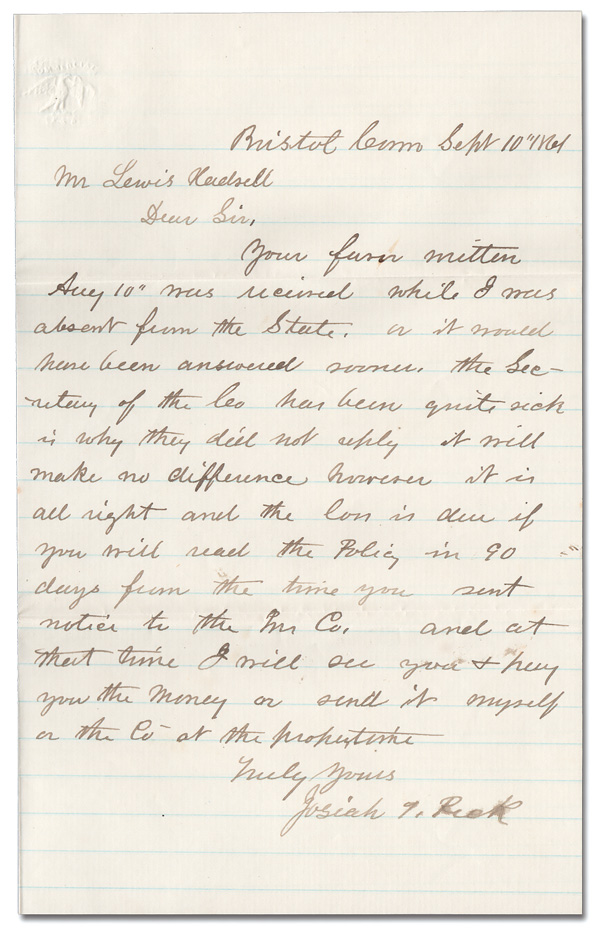 Bristol Conn Sept 10" 1861
Mr Lewis Hadsell
Dear Sir,
Your favor written
Aug 10" was recieved while I was
absent from the State. or it would
have been answered sooner. the Sec-
retary of the Co has been quite sick
is why they did not reply it will
make no difference however it is
all right and the loss is due if
you will read the Policy in 90
days from the time you sent
notice to the Ins Co. and at
that time I will see you & pay
you the money or send it myself
or the Co at the proper time
Truly Yours
Josiah T. Peck